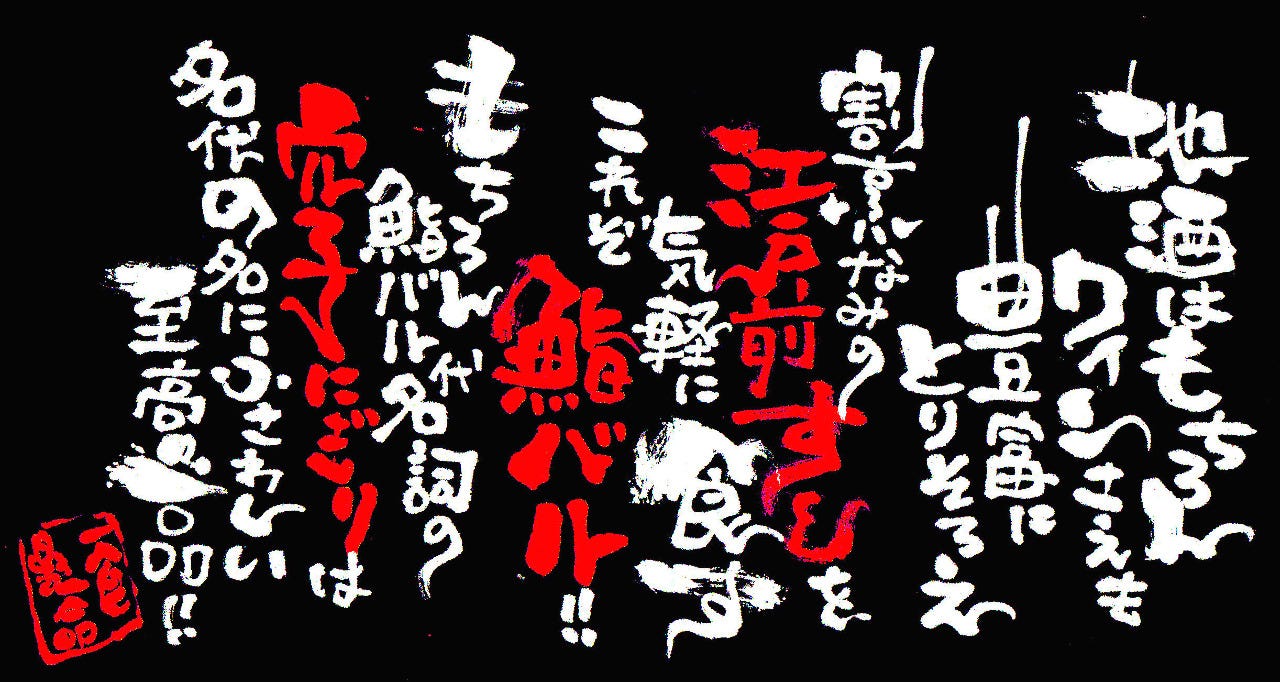 地酒はもちろん
ワインさえも
豊富に
とりそろえ
割烹なみの
江戸前すしを
気軽に食す
これぞ
鮨バル!!
もちろん
鮨バル代名詞の
穴子にぎりは
名代の名にふさわしい
至高の一品!!